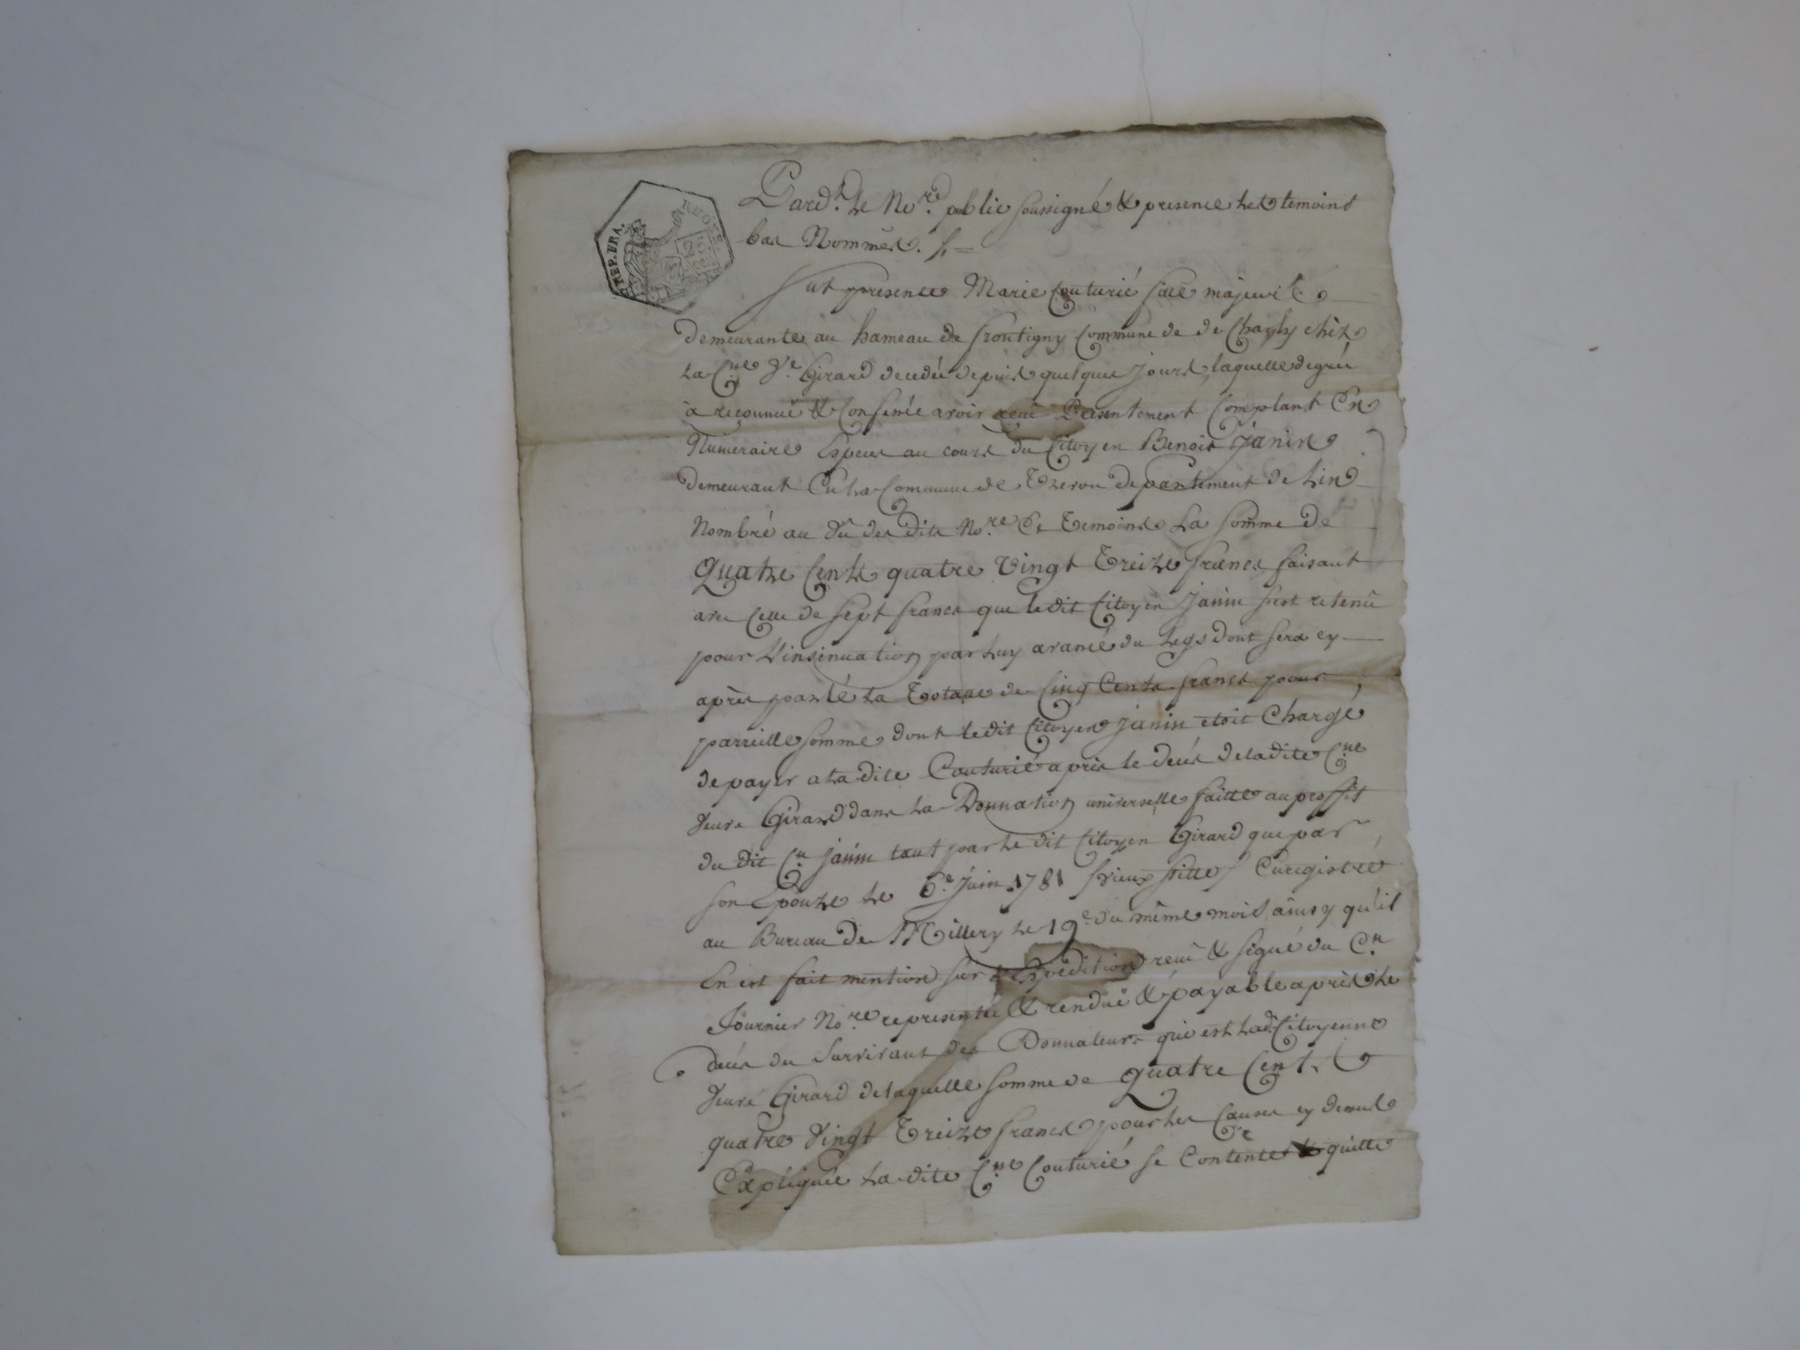 REP. FRA.
Pard.t le No.re public soussigné & presence des temoins
bas Nommés.
fut presente Marie Couturié fille majeure
demeurante au hameau de frontigny Commune de de Charly chèz
la C.ne V.e Girard decedée depuis quelques Jours, laquelle degré
à reconnue & Confessé avoir reçû Presentement Comptant En
Numeraire Especes au cours du Citoyen Benoit Janin
demeurant En la Commune de departement de Lin
Nombré au Vû des dits No.re Et Temoins La somme de
Quatre Cents quatre Vingt Treize francs faisant
avec Celle de sept francs que le dit Citoyen Janin s'est retenû
pour L'insinuation par Luy avancé du Legs dont sera cy
après parlé La Totalle de Cinq Cents francs pour
pareille somme dont le dit Citoyen Janin etoit Chargé
de payer a la dite Couturié après le decés de la dite C.ne
Veuve Girard dans la Donnation universelle faitte au proffit
du dit C.n Janin tant par le dit Citoyen Girard que par
son Epouze le 6.e Juin 1781 Enregistré
au Bureau de Millery le 19.e du même mois ainsy qu'il
En est fait mention sur L'Expedition reçû & signé du C.n
Fournier No.re representée & rendue & payable après le
decés du Survivant des Donnateurs qui est lad. Citoyenne
Veuve Girard de laquelle somme de Quatre Cent
quatre Vingt Treize francs pour les Causes cy dessus
Expliquée La dite C.ne Couturié se Contente & quitte